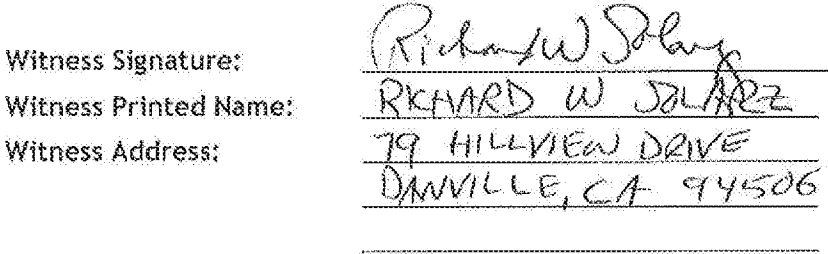 Witness Signature: Richard W Solarz
Witness Printed Name: RICHARD W SOLARZ
Witness Address: 79 HILLVIEW DRIVE
DANVILLE, CA 94506